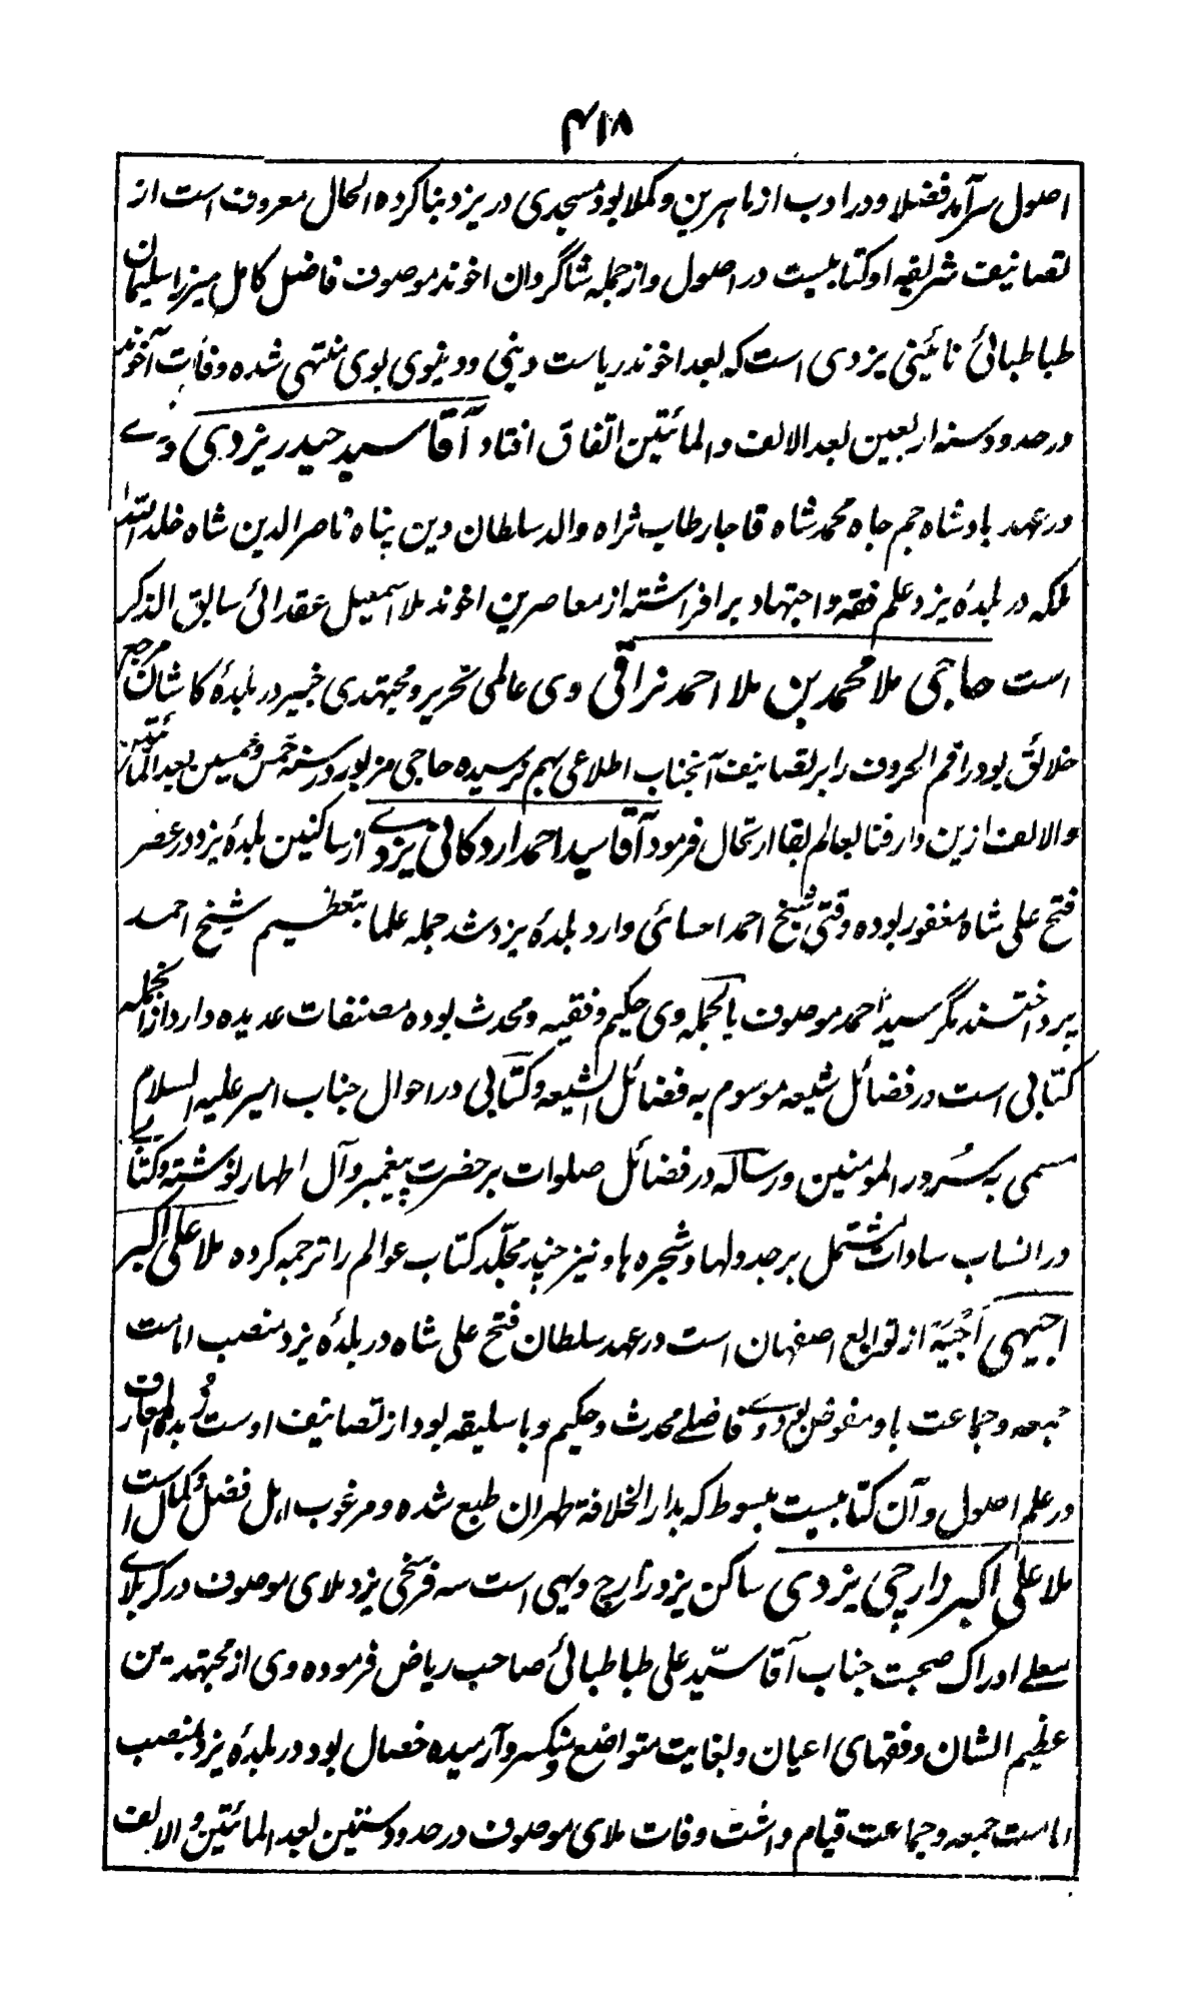 ۴۱۸
اصول سرآمد فضلا و در ادب از ماهرین و کملا بود مسجدی در یزد بنا کرده الحال معروف است از
تصانیف شریفه او کتابیست در اصول و از جمله شاگردان اخوند موصوف فاضل کامل میرزا سلیمان
طباطبائی نائینی یزدی است که بعد اخوند ریاست دینی و دنیوی بوی منتهی شده وفات آخوند
در حدود سنه اربعین بعد الالف والمائتین اتفاق افتاد آقا سید حیدر یزدی وے
در عهد بادشاه جم جاه محمد شاه قاجار طاب ثراه والد سلطان دین پناه ناصر الدین شاه خلد الله
ملکه در بلدهٔ یزد علم فقه و اجتهاد برافراشته از معاصرین اخوند ملا اسمعیل عقدائی سابق الذکر
است حاجی ملا محمد بن ملا احمد نراقی وی عالمی نحریر و مجتهدی خبیر در بلدهٔ کاشان مرجع
خلائق بود راقم الحروف را بر تصانیف آنجناب اطلاعی بهم نرسیده حاجی مزبور در سنه خمس و خمسین بعد المائتین
والالف ازین دار فنا بعالم بقا ارتحال فرمود آقا سید احمد اردکانی یزدے از ساکنین بلدهٔ یزد در عصر
فتح علی شاه مغفور بوده وقتی شیخ احمد احسائی وارد بلدهٔ یزد شد جمله علما بتعظیم شیخ احمد
پرداختند مگر سید احمد موصوف بالجمله وی حکیم و فقیه و محدث بوده مصنفات عدیده دارد ازانجمله
کتابی است در فضائل شیعه موسوم به فضائل الشیعه و کتابی در احوال جناب امیر علیه السلام
مسمی به سُرور المومنین و رساله در فضائل صلوات بر حضرت پیغمبر و آل اطهار نوشته و کتابی
در انساب سادات مشتمل بر جدولها و شجره ها و نیز چند مجلّد کتاب عوالم را ترجمه کرده ملا علی اکبر
اجیهی اَجْیَه از توابع اصفهان است در عهد سلطان فتح علی شاه در بلدهٔ یزد منصب امامت
جمعه و جماعت باو مفوض بود وے فاضلے محدث و حکیم و با سلیقه بود از تصانیف اوست زُبدة المعارف
در علم اصول و آن کتابیست مبسوط که بدار الخلافة طهران طبع شده و مرغوب اهل فضل و کمال است
ملا علی اکبر زارچی یزدی ساکن یزد زارچ دیهی است سه فرسخی یزد ملای موصوف در کربلاے
معلے ادراک صحبت جناب آقا سیّد علی طباطبائی صاحب ریاض فرموده وی از مجتهدین
عظیم الشان و فقهای اعیان و بغایت متواضع و منکسر و آرمیده خصال بود در بلدهٔ یزد بمنصب
امامت جمعه و جماعت قیام داشت وفات ملای موصوف در حدود ستین بعد المائتین والالف